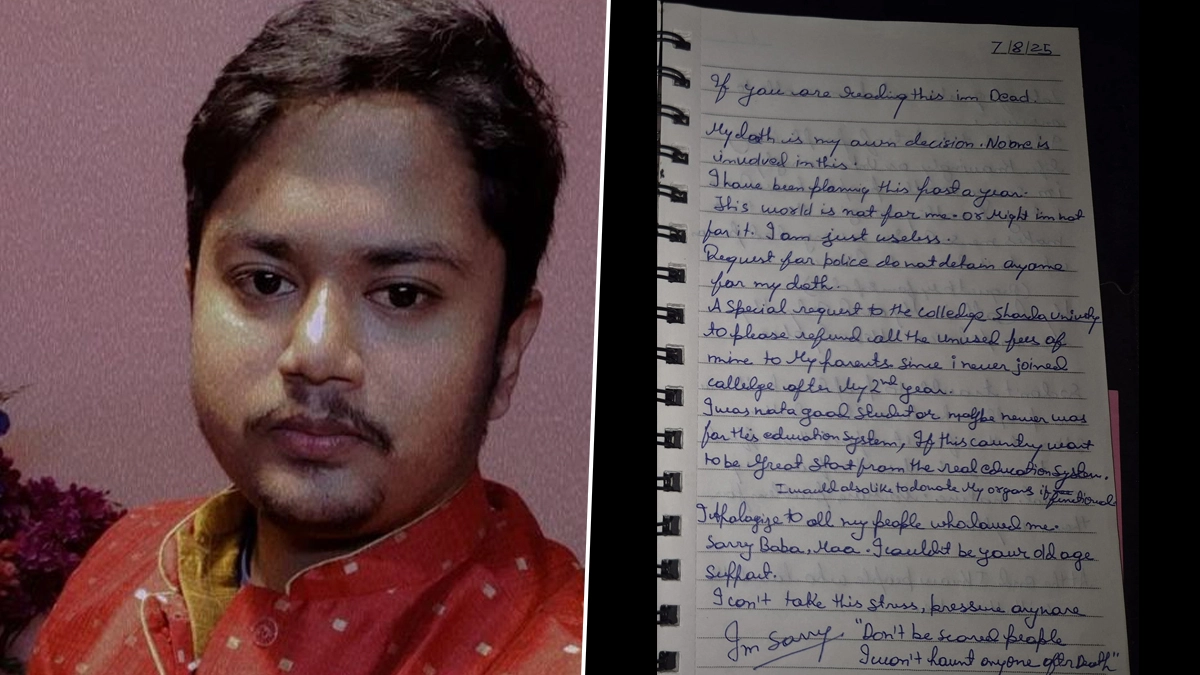 7/8/25
If you are reading this im Dead.
My dath is my own decision. No one is
invovled in this.
I have been planing this past a year.
This world is not for me. or Might im not
for it. I am just useless.
Request for police do not detain anyone
for my dath.
A Special request to the colledge Sharda
to please refund all the unused fees of
mine to My parents. Since i never joined
callelge after My 2nd year.
I was not a good student or maybe never was
for this education system, If this country want
to be Great Start from the real education System.
I would also like to donate My organs if functional
I Apologize to all my people who loved me.
Sorry Baba, Maa. I couldt be your old age
Support.
I con't take this stress, pressure anymore
Im Sorry. "Don't be scared people
I won't haunt anyone after Death"